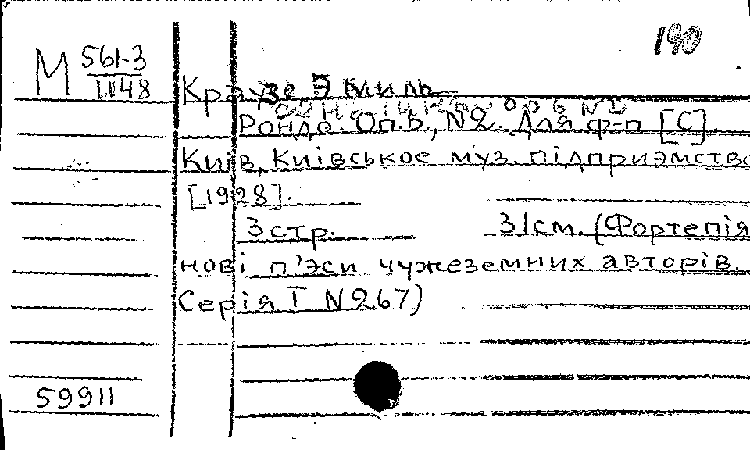 190
М 561-3
III48
Краузе Эмиль
Рондо. Оп. , №2. Для ф-п [С]
Київ, Київськое муз. підприэмство
[1928].
3 стр. 31см. (Фортепія
нові п'эси чужеземних авторів.
Серія I №267)
59911